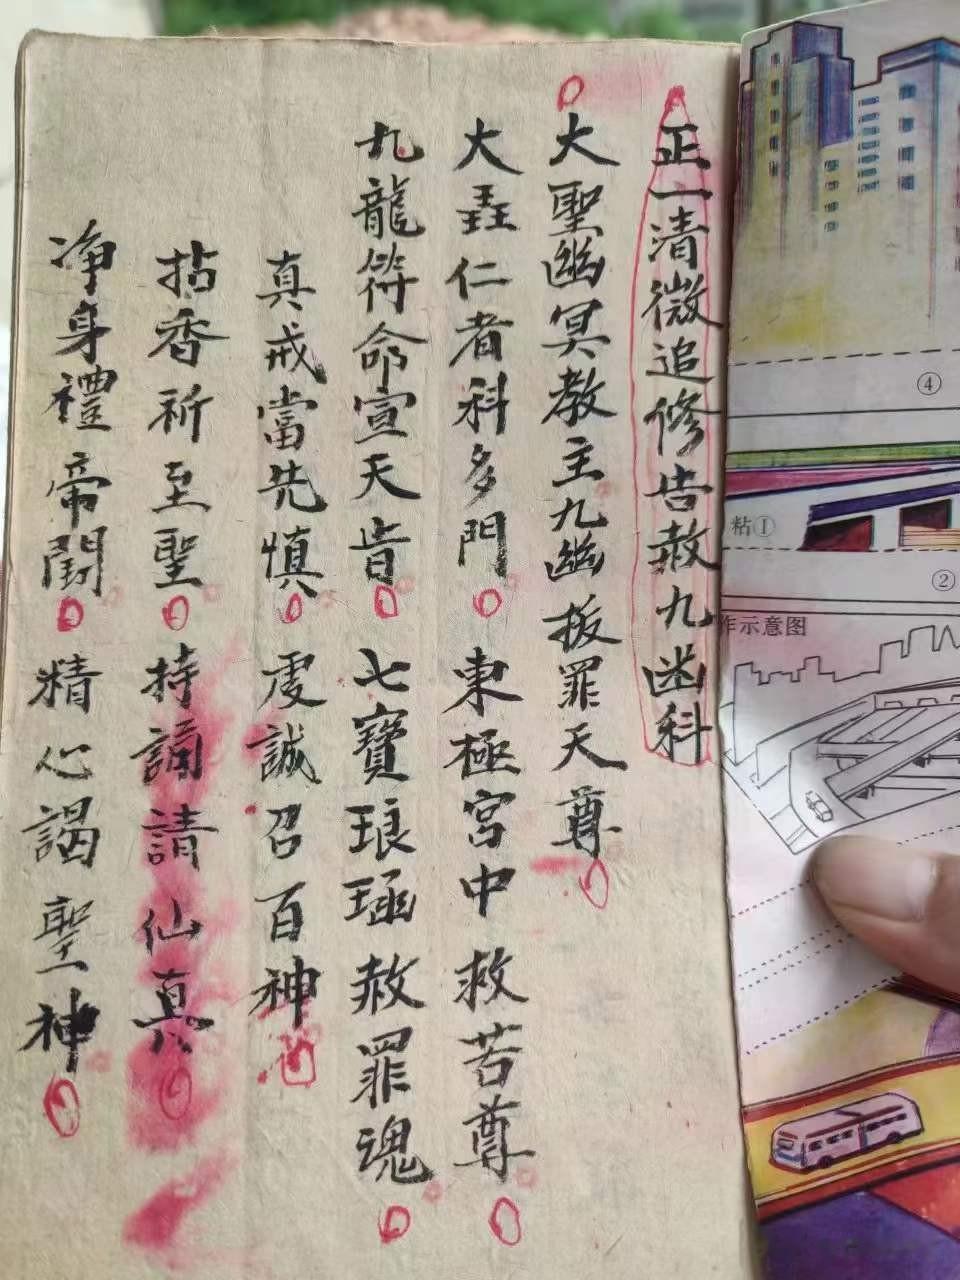 正一清微追修告赦九幽科
大聖幽冥教主九幽拔罪天尊
大孬仁者科多門 東極宮中救苦尊
九龍符命宣天肯 七寶琅函赦罪魂
真戒當先慎 虔誠召百神
拈香祈至聖 持誦請仙真
净身禮帝闕 精心謁聖神
④
粘①
②
作示意图